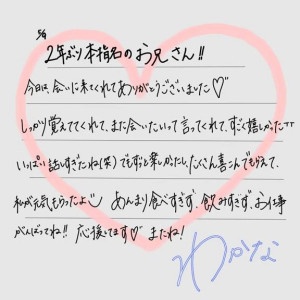 5/9
2年ぶり本指名のお兄さん!!
今日は、会いに来てくれてありがとうございました♡
しっかり覚えててくれて、また会いたいって言ってくれて、すごく嬉しかったTT
いっぱい話しすぎたね(笑)でもずと楽しかったし、たくさん喜こんでもらえて、
私が元気もらったよ あんまり食べすぎず、飲みすぎず、お仕事
がんばってね!! 応援してます♡ またね!
わかな